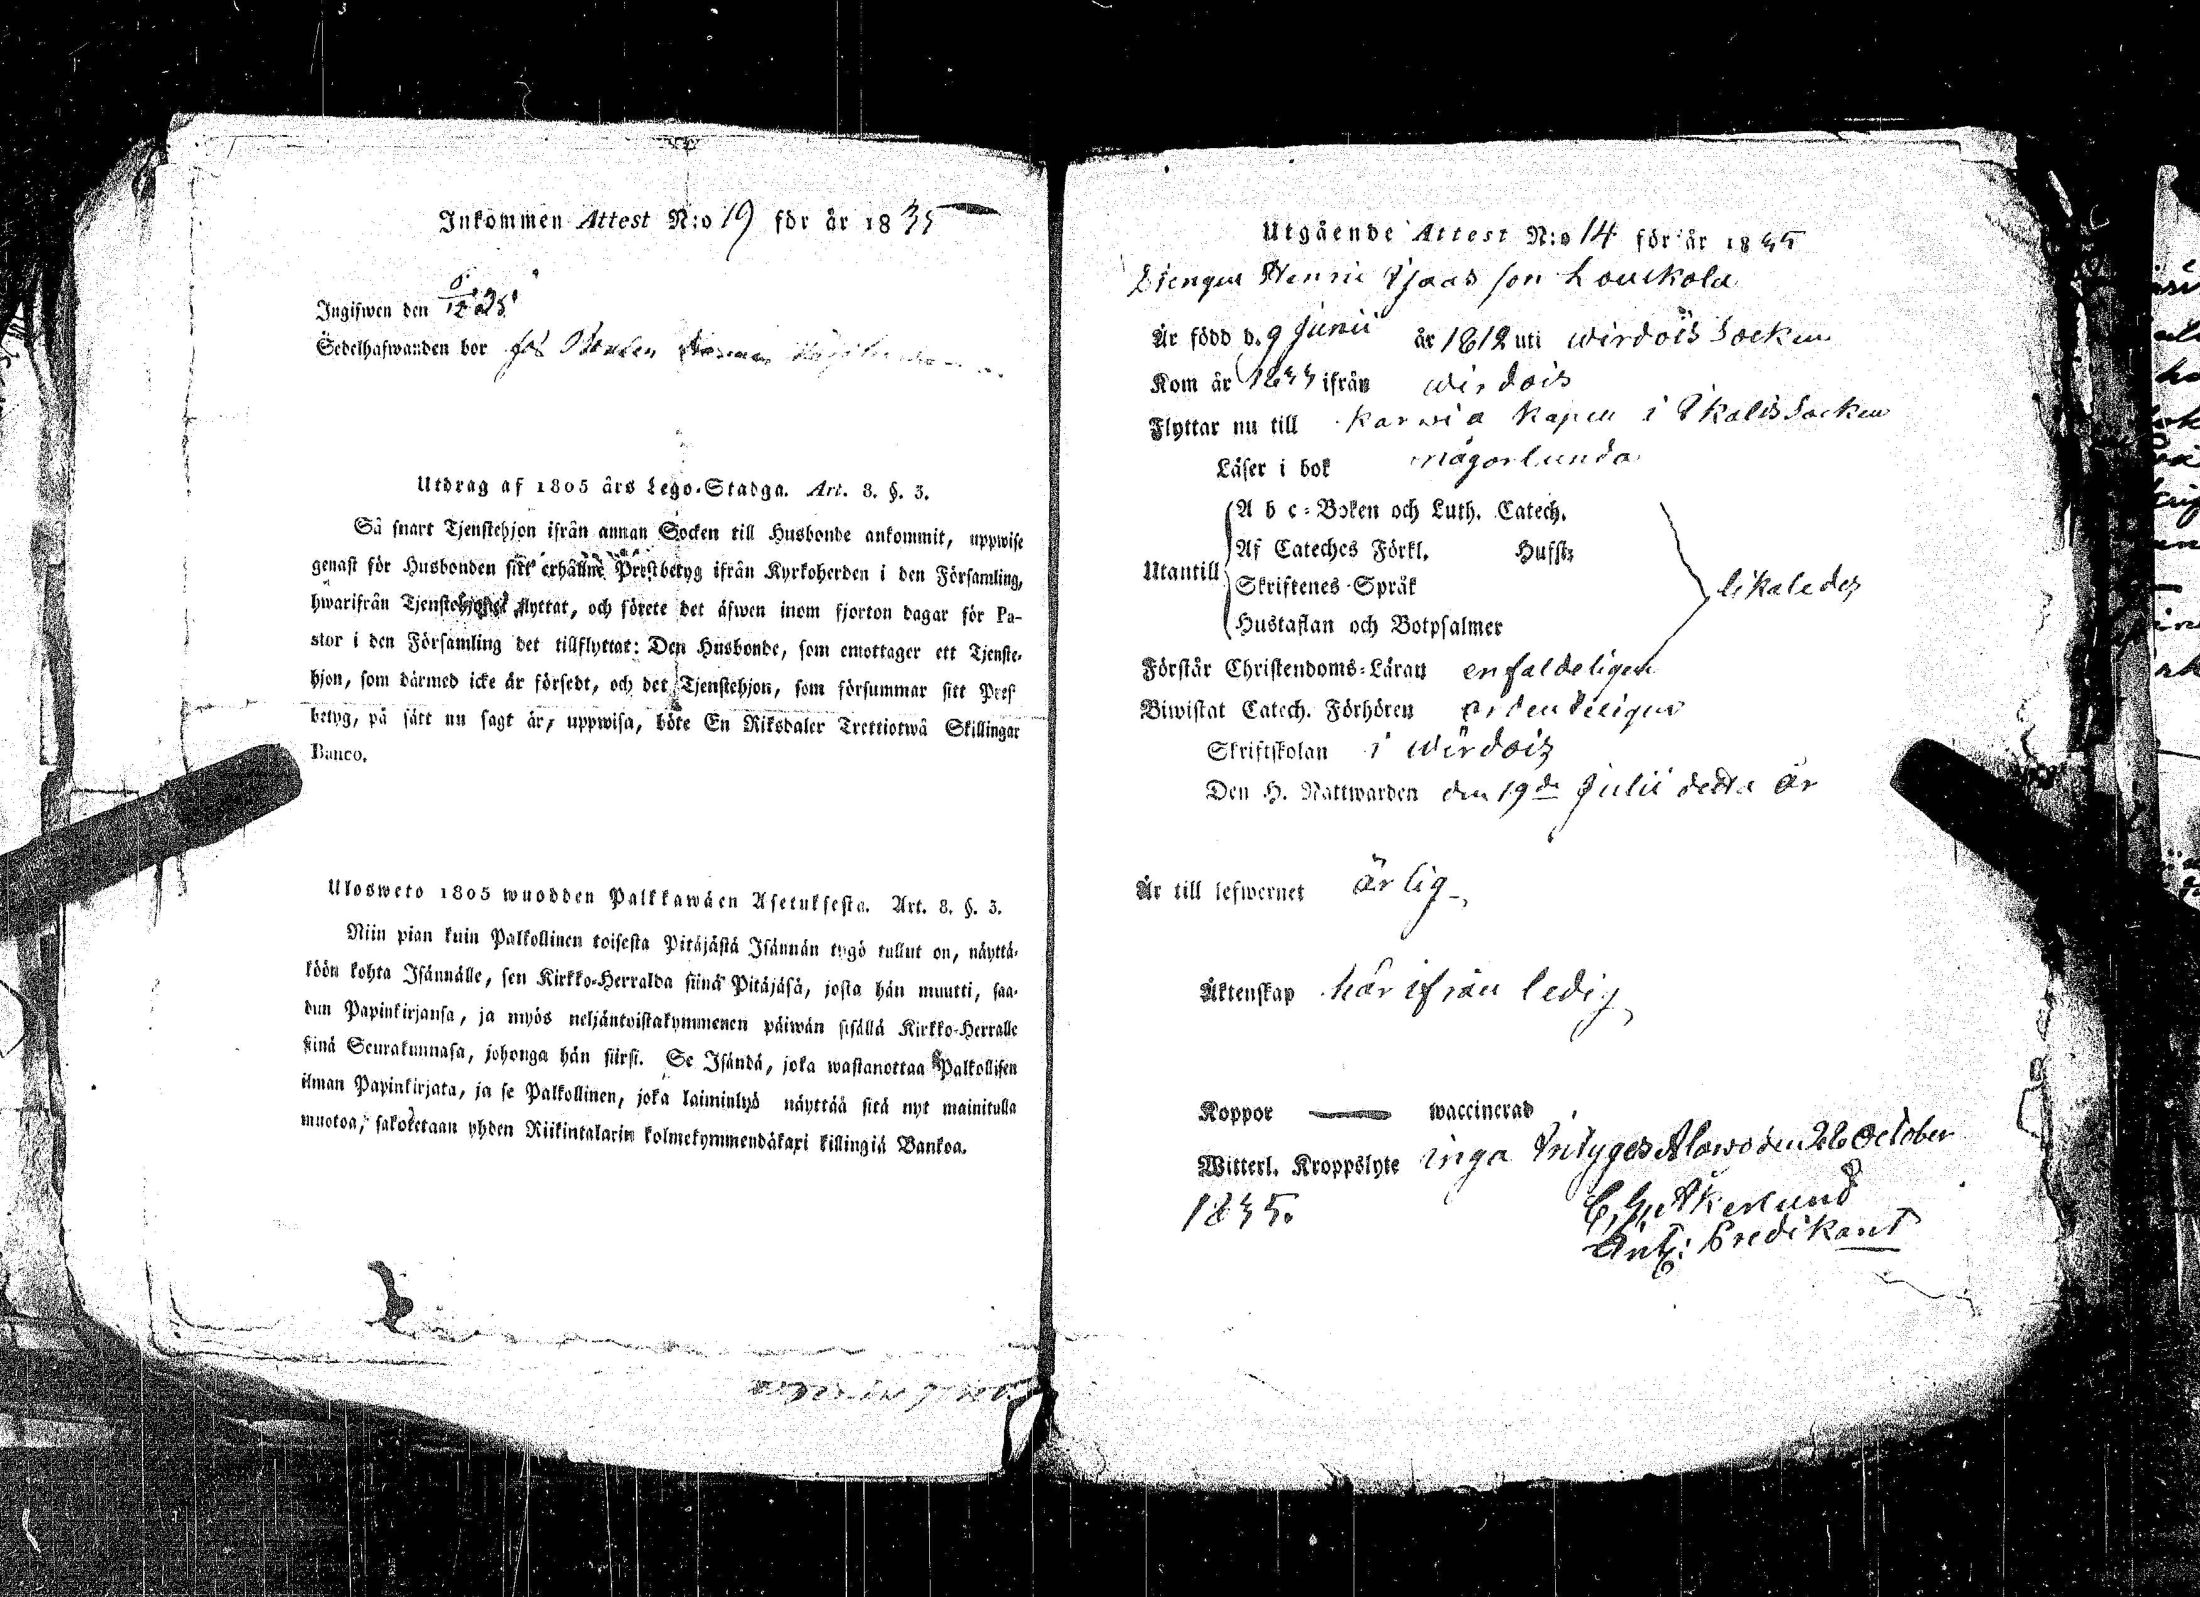 Inkommen Attest N:o 19 för år 1835
Ingifwen den 6/12 35
Sedelhafwanden bor hos
Utdrag af 1805 års Lego-Stadga. Art. 8. §. 3.
Så snart Tjenstehjon ifrån annan Socken till Husbonde ankommit, uppwise
genast för Husbonden sitt erhållne Prestbetyg ifrån Kyrkoherden i den Församling,
hwarifrån Tjenstehjonet flyttat, och förete det äfwen inom fjorton dagar för Pa-
stor i den Församling det tillflyttat: Den Husbonde, som emottager ett Tjenste-
hjon, som därmed icke är försedt, och det Tjenstehjon, som försummar sitt Prest
betyg, på sätt nu sagt är, uppwisa, böte En Riksdaler Trettiotwå Skillingar
Banco.
Ulosweto 1805 wuodden Palkkawäen Asetuksesta. Art. 8. §. 3.
Niin pian kuin Palkollinen toisesta Pitäjästä Isännän tygö tullut on, näyttä-
köön kohta Isännälle, sen Kirkko-Herralda siinä Pitäjäsä, josta hän muutti, saa-
dun Papinkirjansa, ja myös neljäntoistakymmenen päiwän sisällä Kirkko-Herralle
siinä Seurakunnasa, johonga hän siirsi. Se Isändä, joka wastanottaa Palkollisen
ilman Papinkirjata, ja se Palkollinen, joka laiminlyö näyttää sitä nyt mainitulla
muotoa, sakotetaan yhden Riikintalarin kolmekymmendäkaxi killingiä Bankoa.
Utgående Attest N:o 14 för år 1835
Drengen Henric Isaas son Louckola
Är född d. 9 Junii år 1812 uti wirdois Socken
Kom år 1833 ifrån wirdois
Flyttar nu till Karwia Kapell i Ikalis Socken
Läser i bok någorlunda
Utantill
A b c-Boken och Luth. Catech.
Af Cateches Förkl. Hufst:
Skriftenes Språk
Hustaflan och Botpsalmer
likaledes
Förstår Christendoms-Läran enfaldeligen
Biwistat Catech. Förhören ordenteligen
Skriftskolan i wirdois
Den H. Nattwarden den 19de Julii detta år
Är till lefwernet ärlig,
Äktenskap härifrån ledig,
Koppor — waccinerad
Witterl. Kroppslyte inga Intyges Alawo den 26 October
1835.
C. G. Åkerlund
Predikant